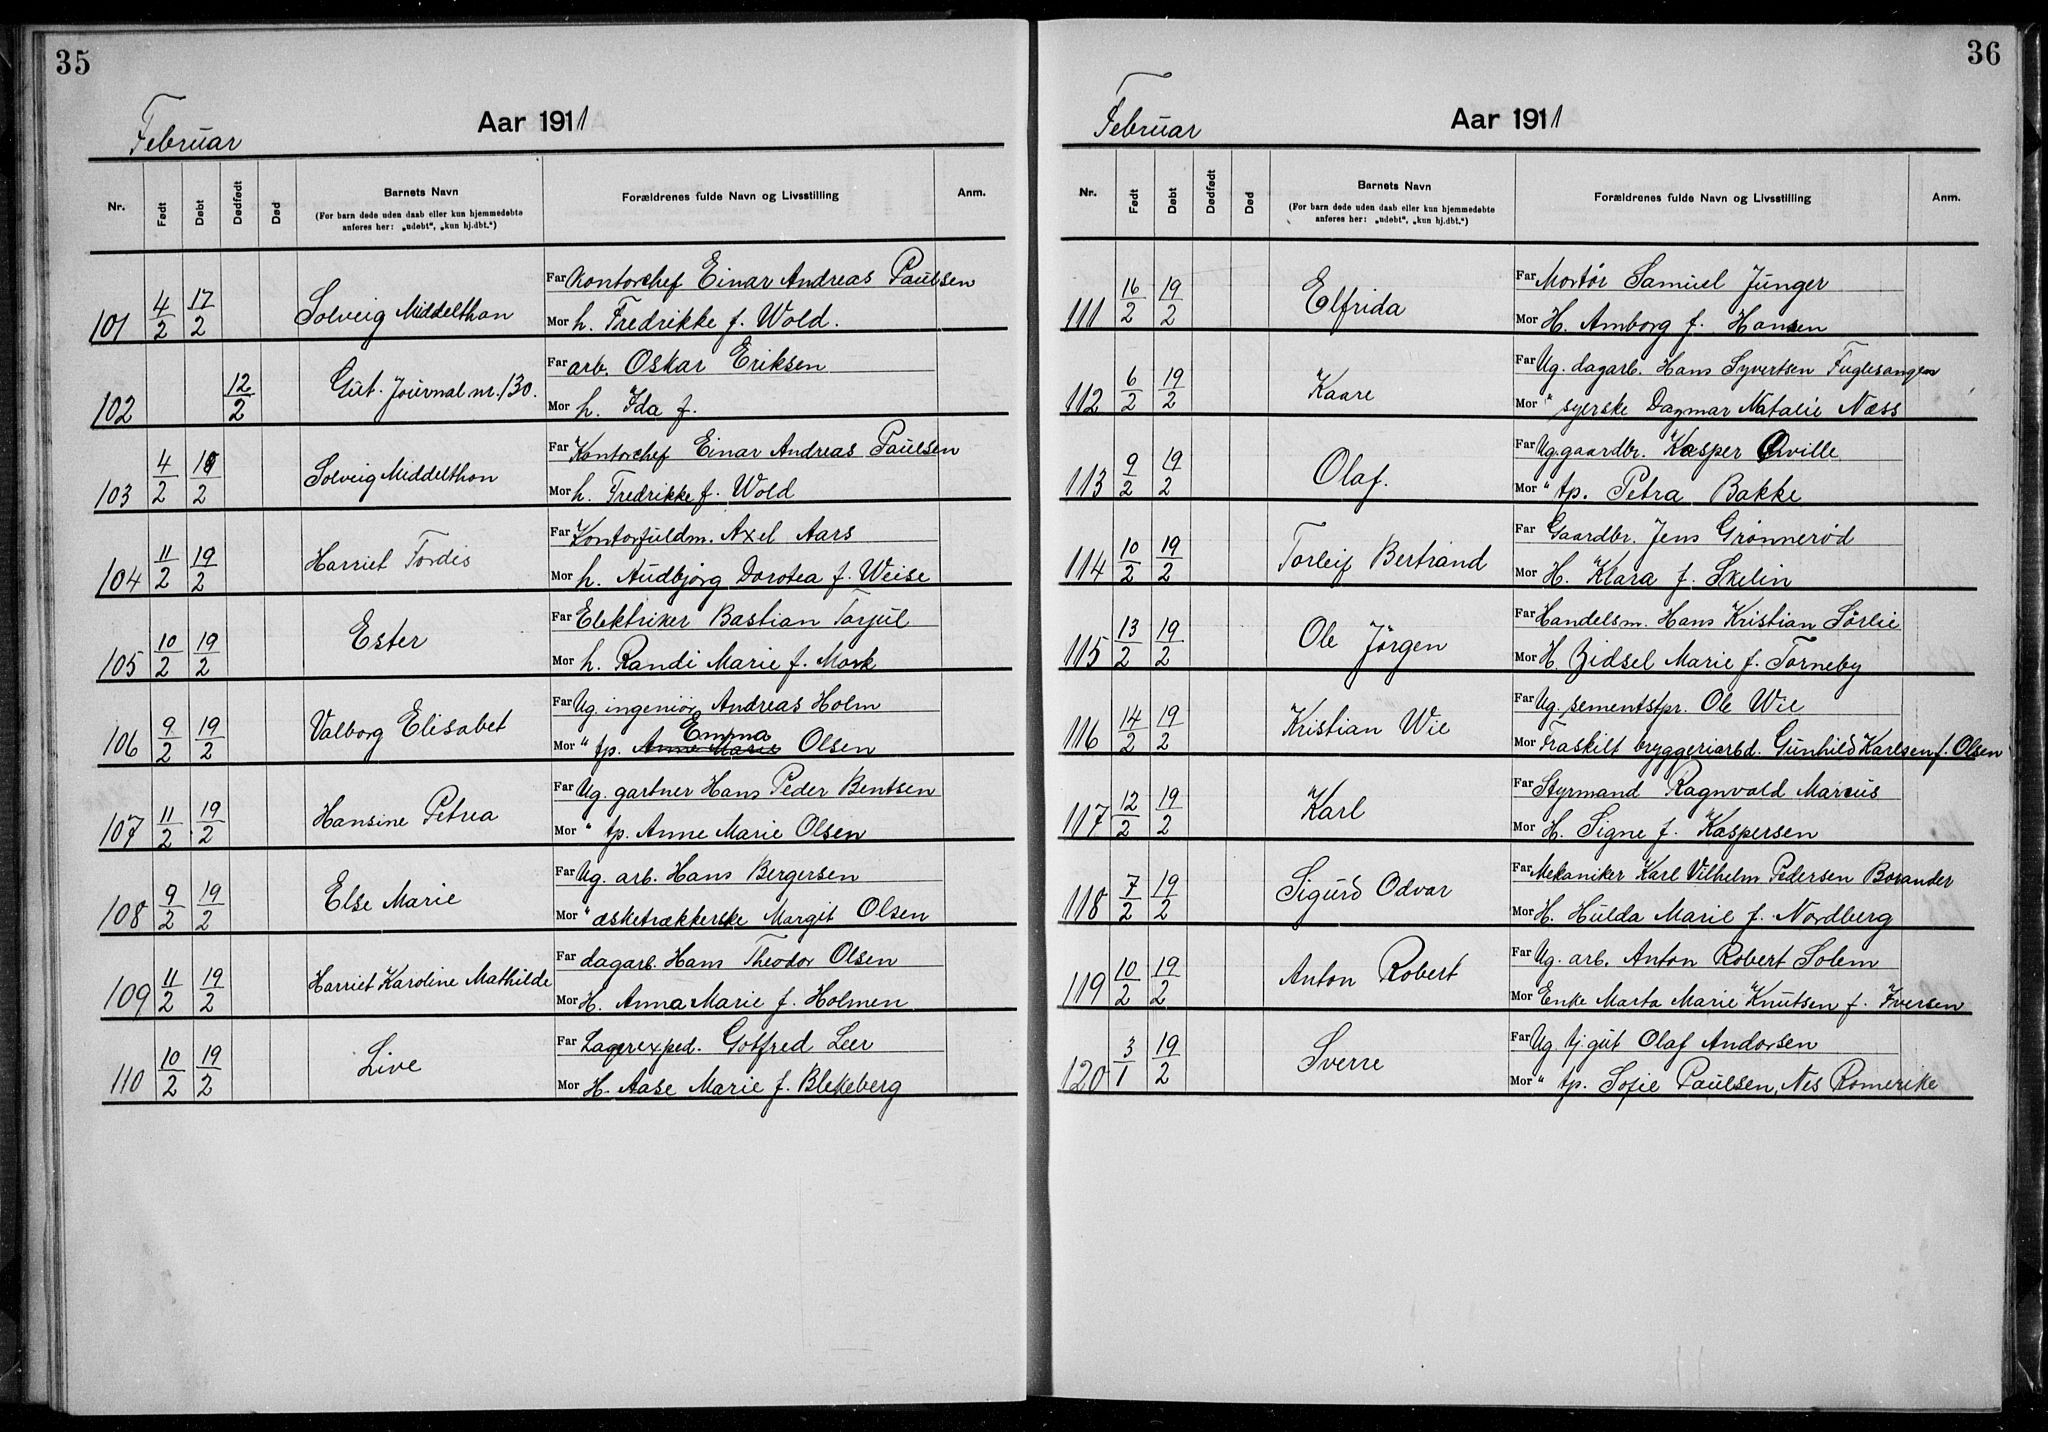 35
Februar
Aar 1911
Nr. Født Døbt Dødfødt Død Barnets Navn Forældrenes fulde Navn og Livsstilling Anm.
(For barn døde uden daab eller kun hjemmedøbte
anføres her: „udøbt“, „kun hj.dbt.“)
Far Kontorchef Einar Andreas Paulsen
101 4/2 17/2 Solveig Middelthon
Mor h. Fredrikke f. Wold.
Far arb. Oskar Eriksen
102 12/2 Gut. Journal nr. 130.
Mor h. Ida f.
Far Kontorchef Einar Andreas Paulsen
103 4/2 18/2 Solveig Middelthon
Mor h. Fredrikke f. Wold
Far Kontorfuldm. Axel Aars
104 11/2 19/2 Harriet Tordis
Mor h. Audbjørg Dorotea f. Weise
Far Elektriker Bastian Torjul
105 10/2 19/2 Ester
Mor h. Randi Marie f. Mork
Far Ug. ingeniør Andreas Holm
106 9/2 19/2 Valborg Elisabet
Emma
Mor " tp. Anne Marie Olsen
Far Ug. gartner Hans Peder Bentsen
107 11/2 19/2 Hansine Petrea
Mor " tp. Anne Marie Olsen
Far Ug. arb. Hans Bergersen
108 9/2 19/2 Else Marie
Mor " æsketrækkerske Margit Olsen
Far dagarb. Hans Theodor Olsen
109 11/2 19/2 Harriet Karoline Mathilde
Mor H. Anna Marie f. Holmen
Far Lagerexped. Gotfred Leer
110 10/2 19/2 Live
Mor H. Aase Marie f. Blekeberg
36
Februar
Aar 1911
Nr. Født Døbt Dødfødt Død Barnets Navn Forældrenes fulde Navn og Livsstilling Anm.
(For barn døde uden daab eller kun hjemmedøbte
anføres her: „udøbt“, „kun hj.dbt.“)
Far Montør Samuel Junger
111 16/2 19/2 Elfrida
Mor H. Amborg f. Hansen
Far Ug. dagarb. Hans Syvertsen Fuglesangen
112 6/2 19/2 Kaare
Mor " syerske Dagmar Natalie Næss
Far Ug. gaardbr. Kasper Qville
113 9/2 19/2 Olaf.
Mor " tp. Petra Bakke
Far Gaardbr. Jens Grønnerød
114 10/2 19/2 Torleif Bertrand
Mor H. Klara f. Skelin
Far Handelsm. Hans Kristian Sørlie
115 13/2 19/2 Ole Jørgen
Mor H. Zidsel Marie f. Torneby
Far Ug. sementstpr. Ole Wie
116 14/2 19/2 Kristian Wie
Mor Fraskilt bryggeriarbd. Gunhild Karlsen f. Olsen
Far Styrmand Ragnvald Marcus
117 12/2 19/2 Karl
Mor H. Signe f. Kaspersen
Far Mekaniker Karl Vilhelm Pedersen Borander
118 7/2 19/2 Sigurd Odvar
Mor H. Hulda Marie f. Nordberg
Far Ug. arb. Anton Robert Solem
119 10/2 19/2 Anton Robert
Mor Enke Marta Marie Knutsen f. Iversen
Far Ug. tj.gut Olaf Andorsen
120 3/1 19/2 Sverre
Mor " tp. Sofie Paulsen, Nes Romerike